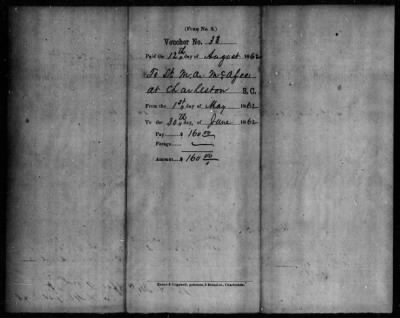 (Form No. 3.)
Voucher No. 38
Paid the 12th day of August 1862
To Lt. M.A. McAfee
at Charleston S. C.
From the 1st day of May 1862
To the 30th day, of June 1862
Pay......$ 160 00
Forage......
Amount....$ 160 00
Evans & Cogswell, printers, 3 Broad-st., Charleston.